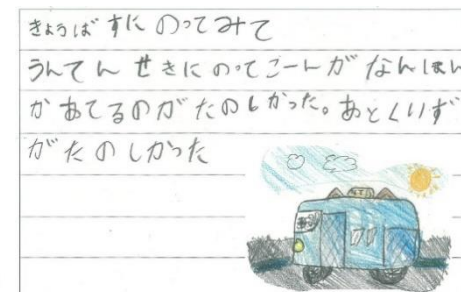 きょうばすに のってみて
うんてん せきにのってごートが なんほん
か あてるのが たのしかった。あとくいず
が たのしかった